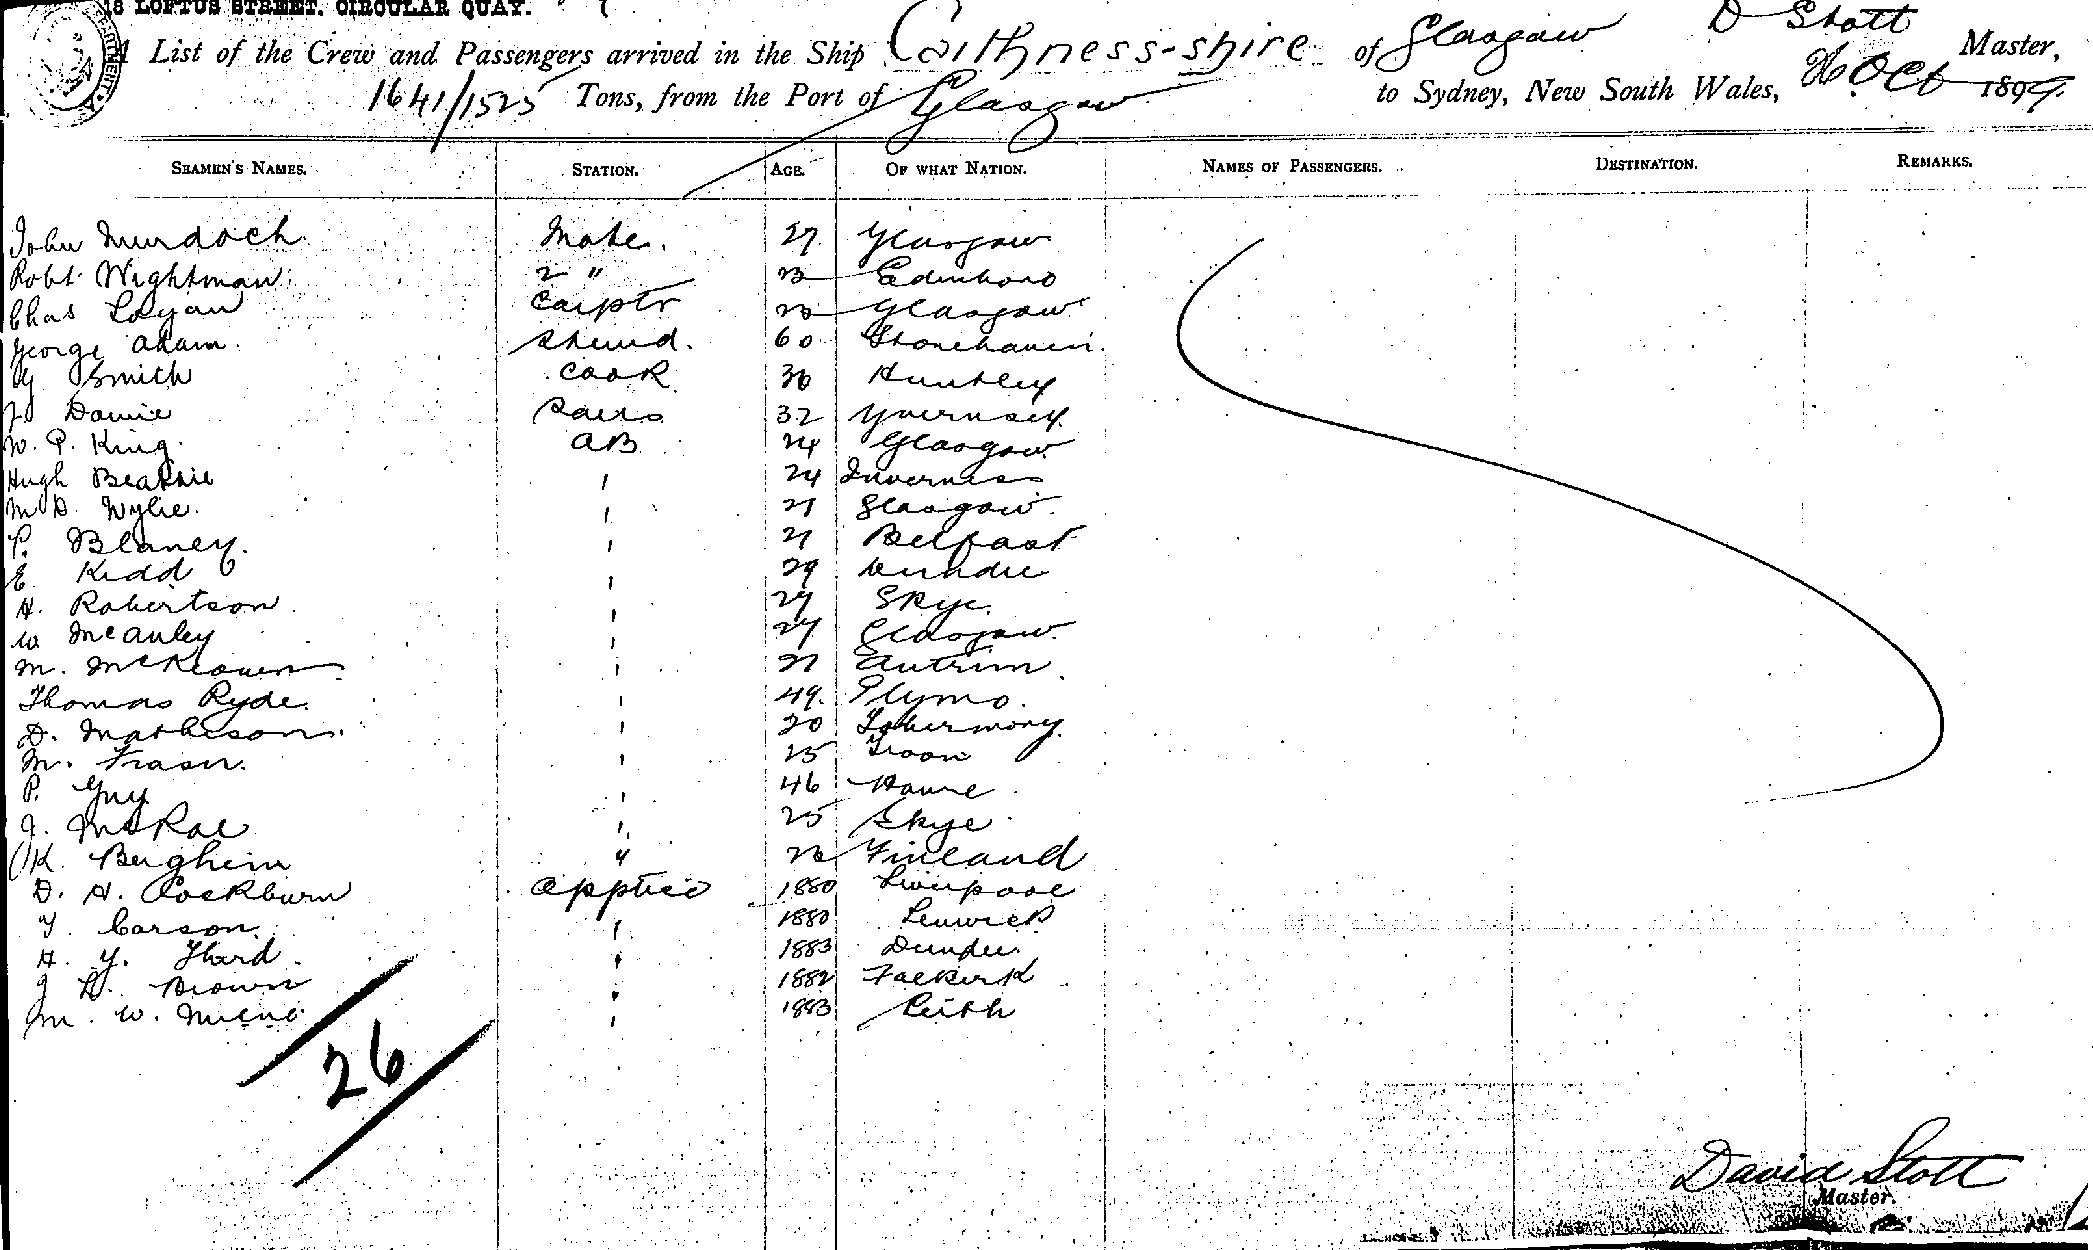 18 LOFTUS STREET, CIRCULAR QUAY.
A List of the Crew and Passengers arrived in the Ship Caithness-shire of Glasgow D Stott Master,
1641/1525 Tons, from the Port of Glasgow to Sydney, New South Wales, Oct 1899.
SEAMEN'S NAMES. STATION. AGE. OF WHAT NATION. NAMES OF PASSENGERS. DESTINATION. REMARKS.
John Murdoch Mate. 27 Glasgow
Robt Wightman 2 " 23 Edinboro
Chas Logan Carptr Glasgow
George Adam. Steward. 60 Stonehaven.
G Smith Cook 36 Huntley
Downie Sails 32 Guernsey
W. P. King. AB 24 Glasgow
Hugh Beattie " 24 Inverness
M D. Wylie. " 21 Glasgow.
P. Blaney. " 21 Belfast
E Kidd " 29 Dundee
H. Robertson " 27 Skye.
W McAuley " 27 Glasgow
M. McKeown " 21 Antrim
Thomas Ryde. " 49. Plymo.
D. Mathison. " 20 Tobermory.
M. Fraser. " 25 Troon
P. Guy " 46 Havre
J. McRae " 25 Skye
K. Berghein " Finland
D. H. Cockburn Apptice 1880 Liverpool
T. Carson. " 1880 Lerwick
H. Y. " 1883 Dundee.
J Brown " 1882 Falkirk
M. W. Milne " 1883 Leith
26
David Stott
Master.